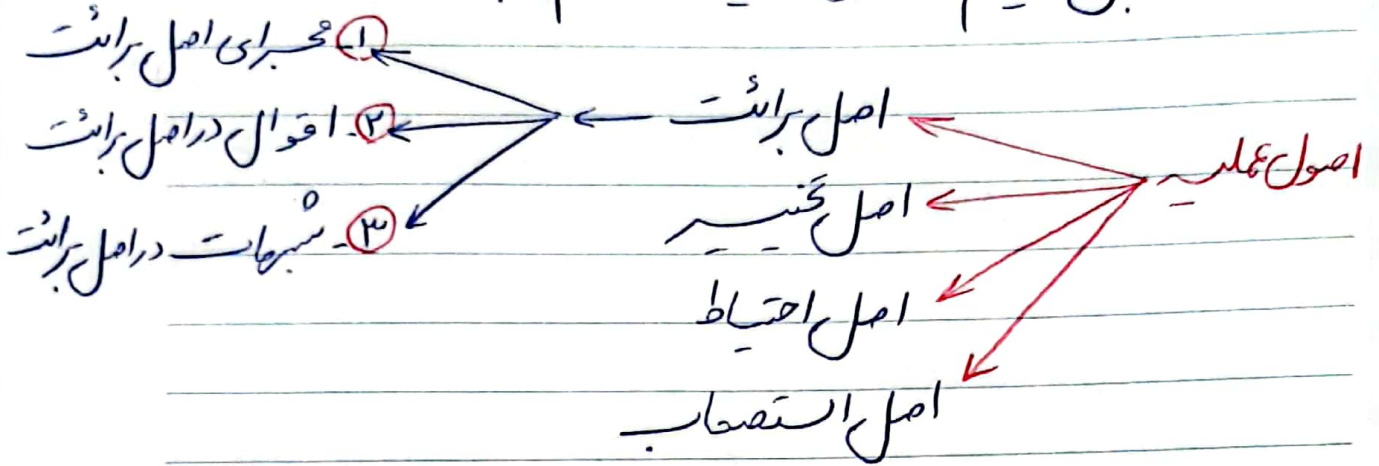 اصول عملیه
اصل برائت
اصل تخییر
اصل احتیاط
اصل استصحاب
۱- مجرای اصل برائت
۲- اقوال در اصل برائت
۳- شبهات در اصل برائت